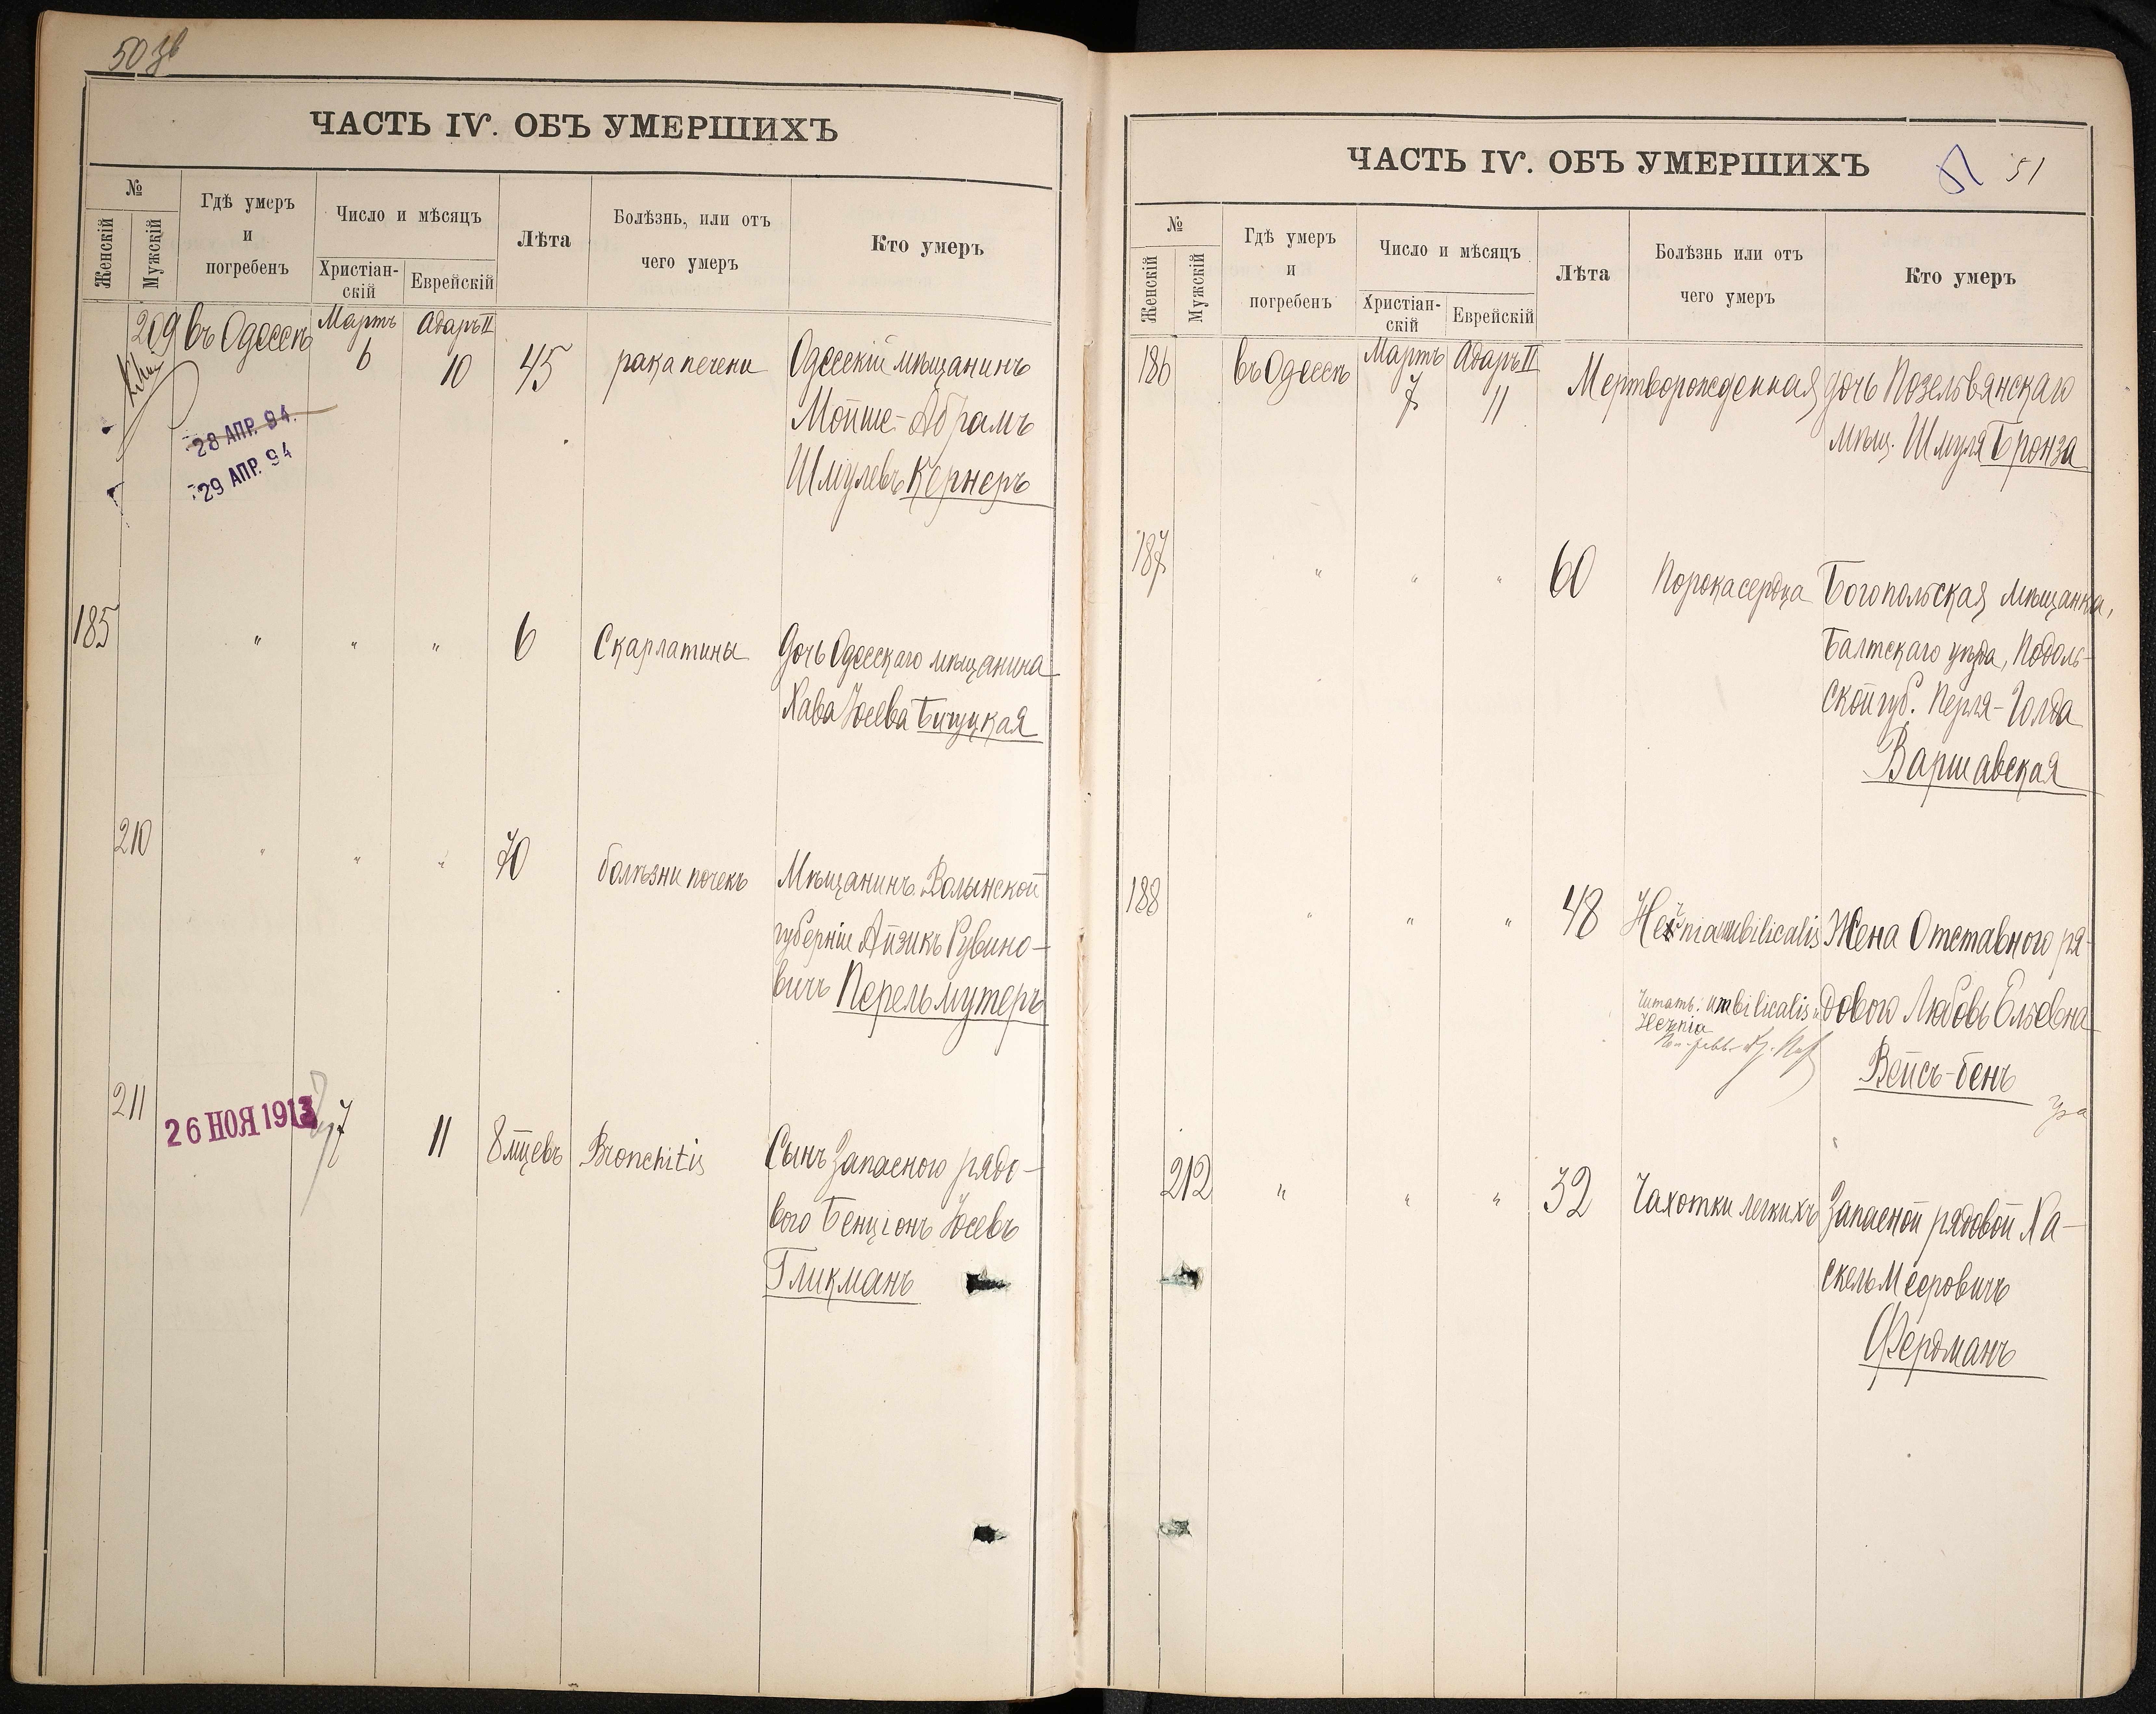 50 зв
ЧАСТЬ IV. ОБЪ УМЕРШИХЪ
№
Женскій
Мужскій
Гдѣ умеръ
и
погребенъ
Число и мѣсяцъ
Христіан-
скій
Еврейскій
Лѣта
Болѣзнь, или отъ
чего умеръ
Кто умеръ
209 въ Одессѣ Мартъ 6 Адаръ II 10 45 рака печени Одесскій мѣщанинъ
Мойше-Абрамъ
Шмулевъ Кернеръ
28 АПР. 94.
29 АПР. 94
185 " " " 6 Скарлатины Дочь Одесскаго мѣщанина
Хава Іосева Бицуцкая
210 " " " 70 болѣзни почекъ Мѣщанинъ Волынской
губерніи Айзикъ Рувино-
вичъ Перельмутеръ
211 7 11 8 мцевъ Bronchitis Сынъ Запаснаго рядо-
вого Бенціонъ Іосевъ
Гликманъ
26 НОЯ 1913
ЧАСТЬ IV. ОБЪ УМЕРШИХЪ
51 51
№
Женскій
Мужскій
Гдѣ умеръ
и
погребенъ
Число и мѣсяцъ
Христіан-
скій
Еврейскій
Лѣта
Болѣзнь или отъ
чего умеръ
Кто умеръ
186 въ Одессѣ Мартъ 7 Адаръ II 11 Мертворожденная дочь Позельвянскаго
мѣщ. Шмуля Бронза
187 " " " 60 Порока сердца Богопольская мѣщанка,
Балтскаго уѣзда, Подоль-
ской губ. Перля-Голда
Варшавская
188 " " " 48 Hernia umbilicalis Жена Отставного ря-
дового Любовь Ельевна
Вейсъ-бенъ
Читать: umbilicalis и
Hernia
212 " " " 32 Чахотки легкихъ Запасной рядовой Ха-
скель Мееровичъ
Фердманъ